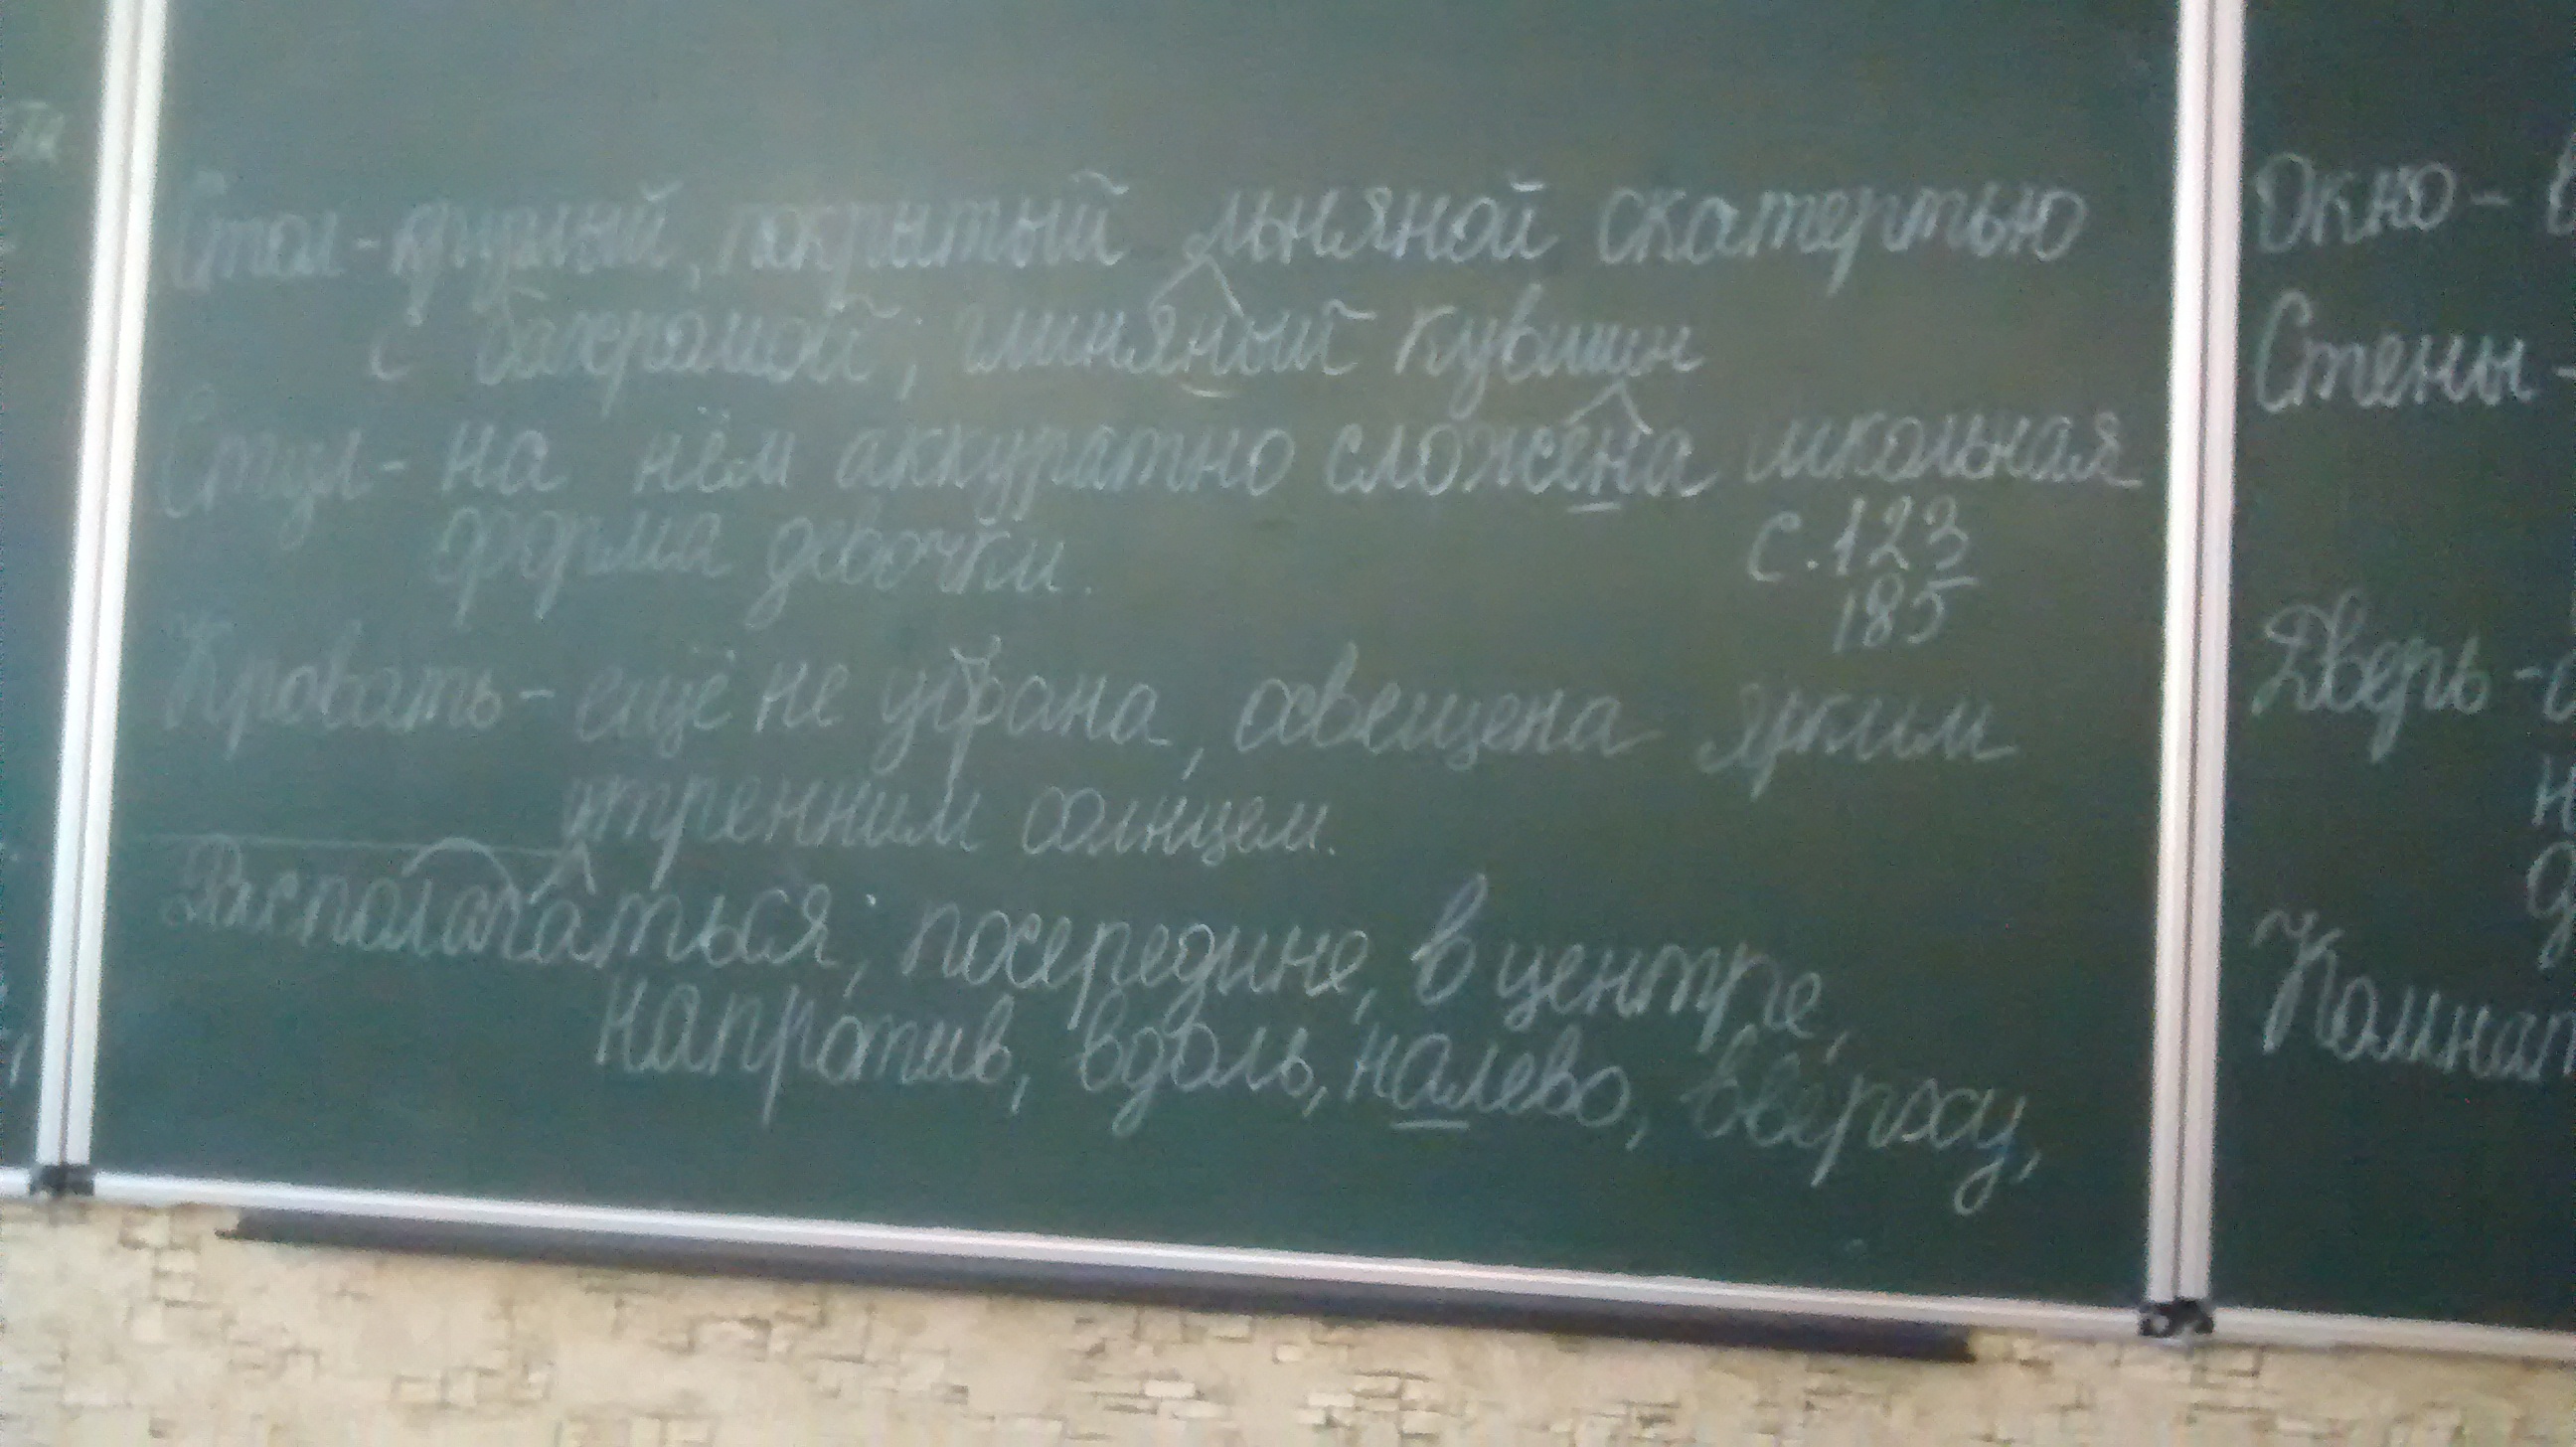 Стол - круглый, покрытый льняной скатертью
с бахромой; глиняный кувшин
Стул - на нём аккуратно сложена школьная
форма девочки.
с. 123
185
Кровать - ещё не убрана, освещена ярким
утренним солнцем.
Располагаться; посередине, в центре,
напротив, вдоль, налево, вверху,
Окно -
Стены -
Дверь -